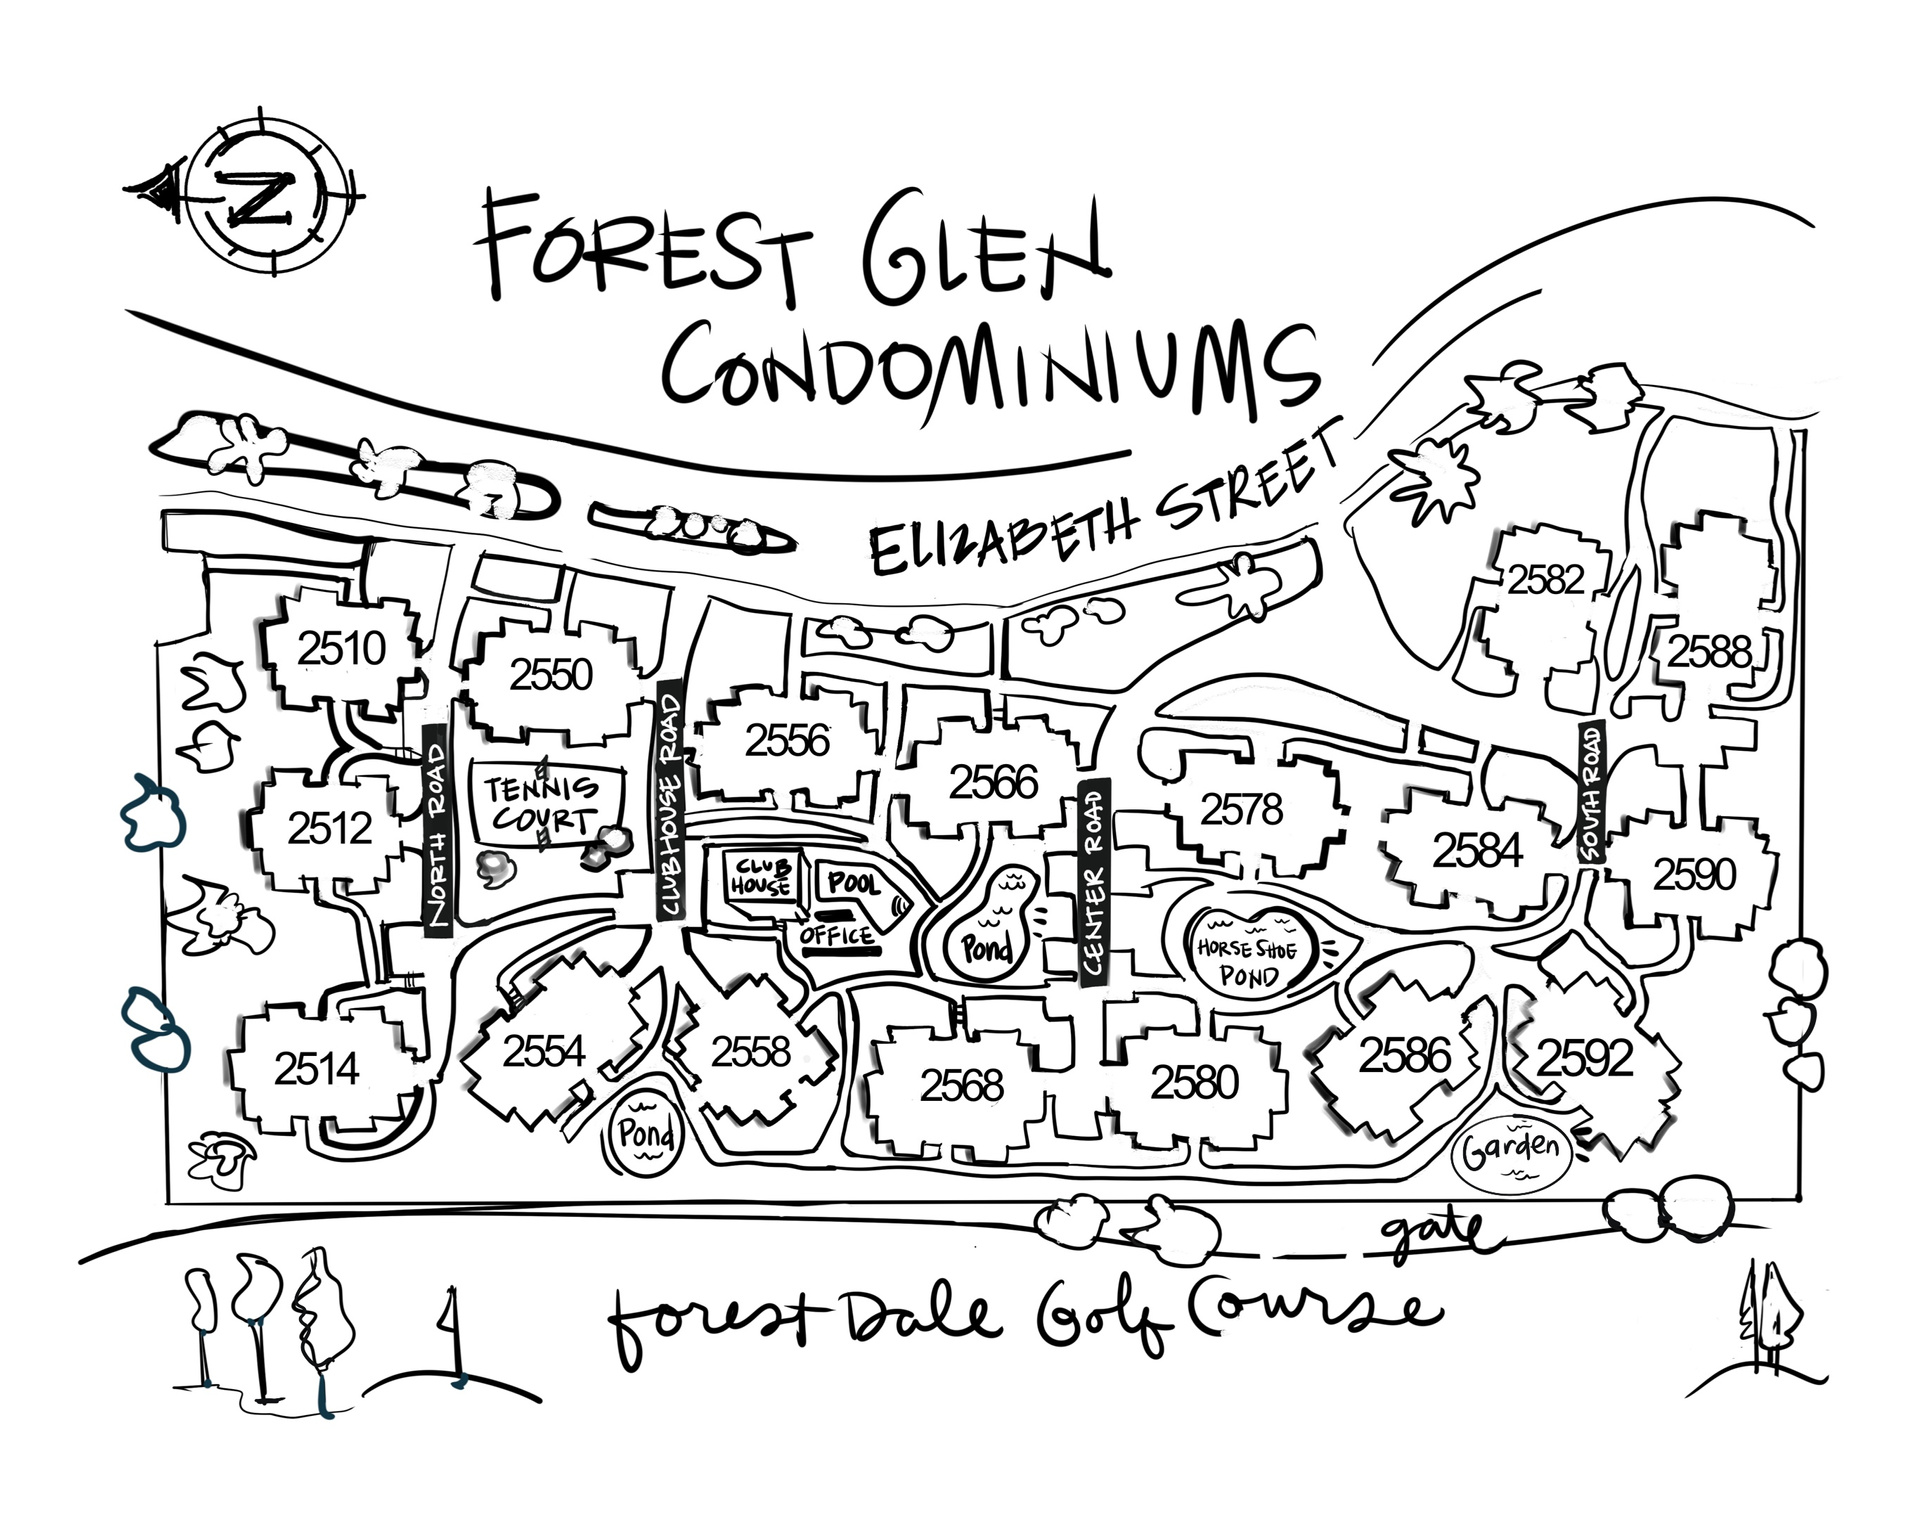 N
FOREST GLEN
CONDOMINIUMS
ELIZABETH STREET
2582
2588
2510
2550
2556
2566
2578
2584
2590
2512
TENNIS
COURT
NORTH ROAD
CLUBHOUSE ROAD
CENTER ROAD
SOUTH ROAD
CLUB
HOUSE
POOL
OFFICE
Pond
HORSE SHOE
POND
2514
2554
2558
2568
2580
2586
2592
Pond
Garden
gate
Forest Dale Golf Course